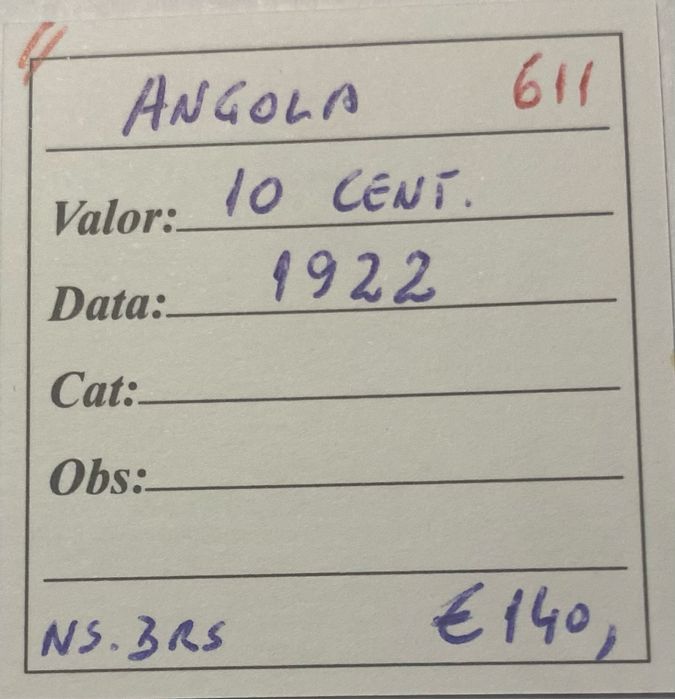 4
ANGOLA 611
Valor: 10 CENT.
Data: 1922
Cat:
Obs:
NS. 3RS €140,